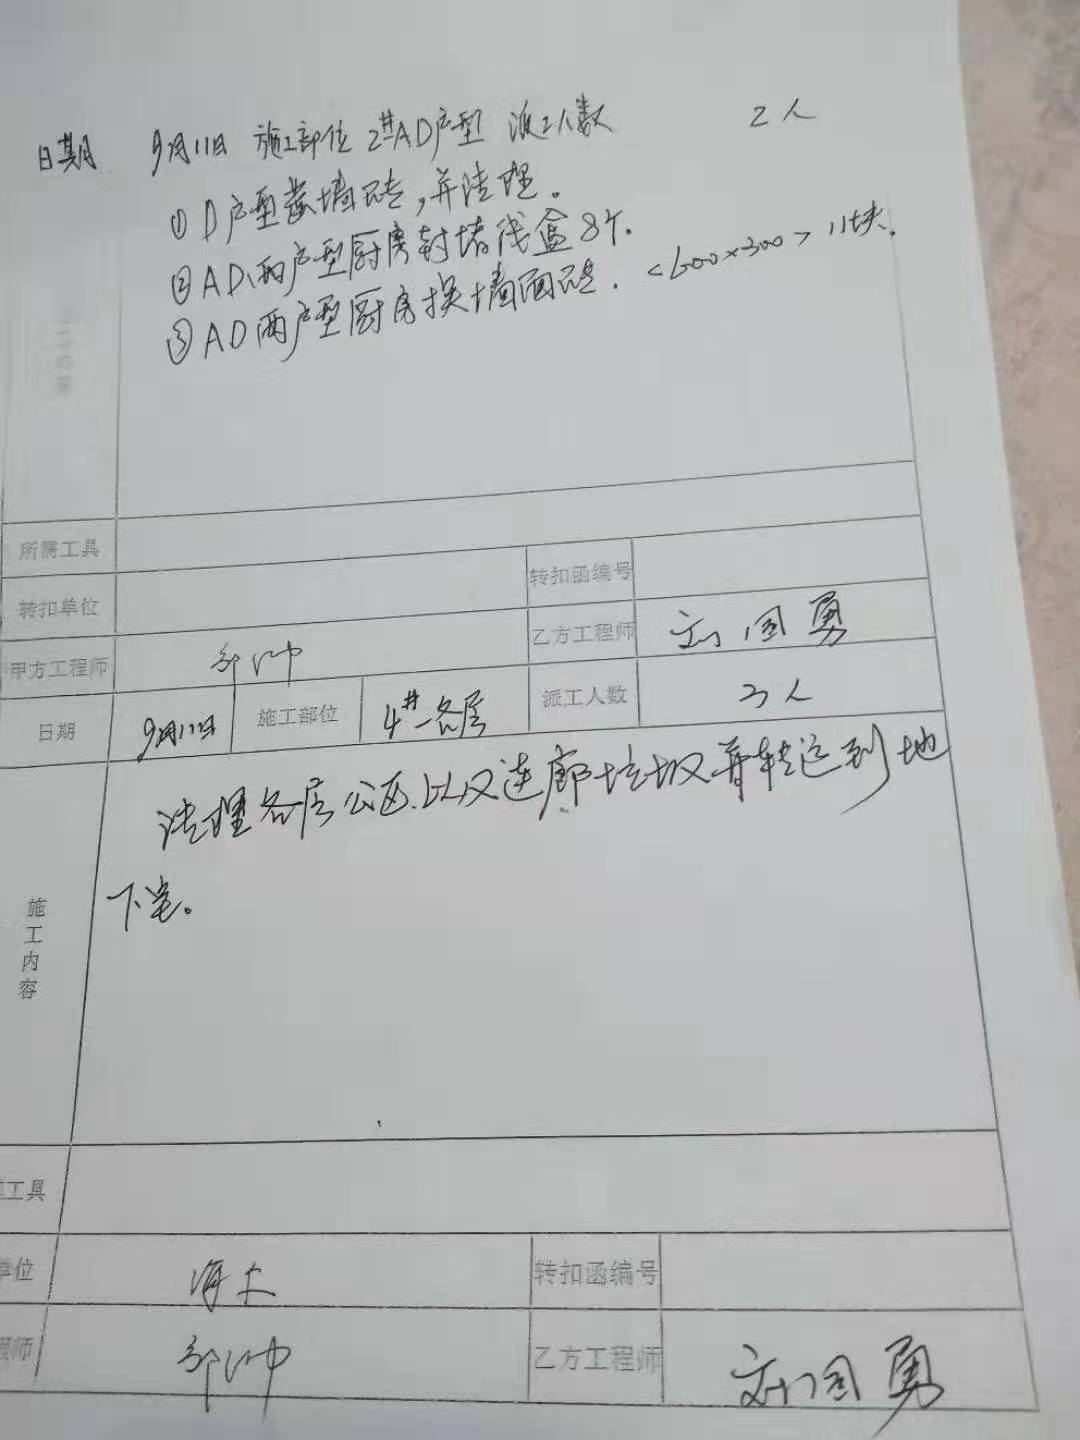 日期 9月11日 施工部位 2#AD户型 派工人数 2人
①D户型凿墙砖,并清理。
②AD两户型厨房封堵线盒8个.
③AD两户型厨房换墙面砖. <600×300> 11块.
所需工具
转扣单位 转扣函编号
甲方工程师 乙方工程师 刘国勇
日期 9月11日 施工部位 4#各层 派工人数 3人
清理各层公区.以及连廊垃圾并转运到地
下室。
施工内容
工具
单位 转扣函编号
程师 乙方工程师 刘国勇